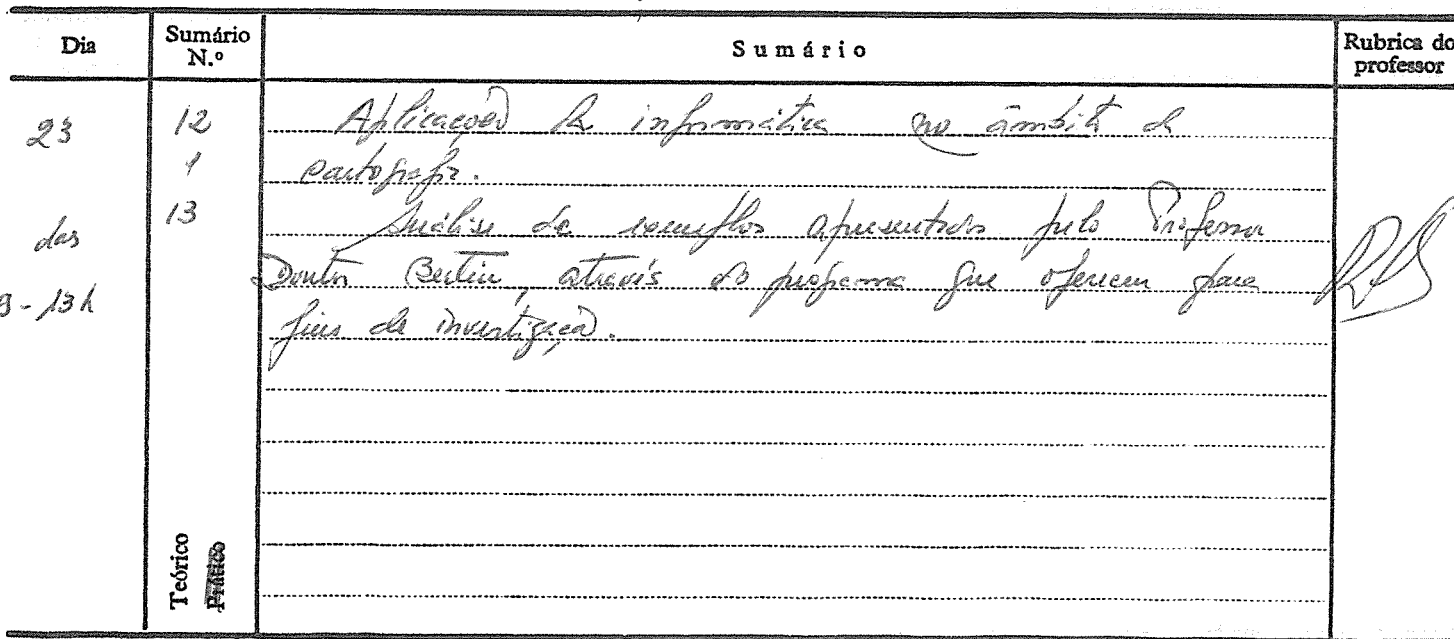 Dia
Sumário N.º
Sumário
Rubrica do professor
23
das
9-13h
12
1
13
Aplicações da informática no âmbito da
cartografia.
Análise de exemplos apresentados pelo Professor
Doutor Bertin, através do programa que oferecem para
fins de investigação.
Teórico
Prático